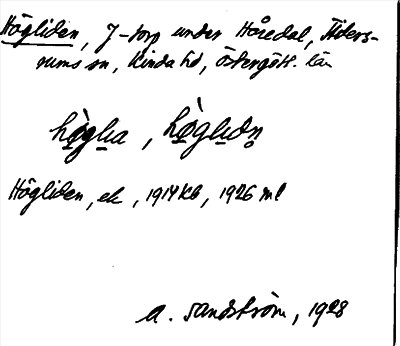 Högliden, J-torp under Håredal, Tiders-
rums sn, Kinda hd, Östergötl. län
hø̀glia, hø̀glidn̥
Högliden, ek, 1914 Kb, 1926 ml
A. Sandström, 1928